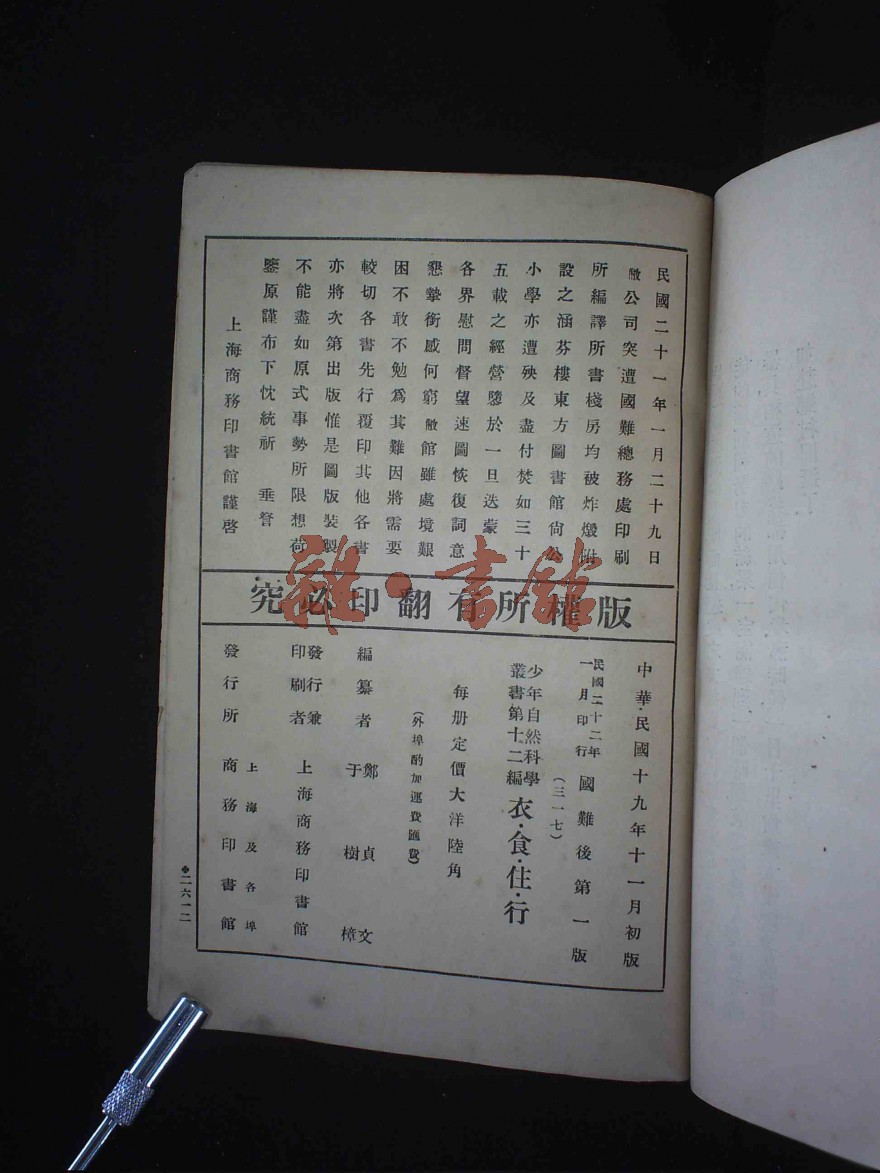 民國二十一年一月二十九日
敝公司突遭國難總務處印刷
所編譯所書棧房均被炸燬附
設之涵芬樓東方圖書館尙公
小學亦遭殃及盡付焚如三十
五載之經營隳於一旦迭蒙
各界慰問督望速圖恢復詞意
懇摯銜感何窮敝館雖處境艱
困不敢不勉爲其難因將需要
較切各書先行覆印其他各書
亦將次第出版惟是圖版裝製
不能盡如原式事勢所限想荷
鑒原謹布下忱統祈 垂詧
上海商務印書館謹啓
版權所有翻印必究
雜·書館
中華民國十九年十一月初版
民國二十二年一月印行 國難後第一版
(三一七)
少年自然科學叢書第十二編 衣·食·住·行
每册定價大洋陸角
(外埠酌加運費匯費)
編纂者 鄭貞文 于樹樟
發行兼印刷者 上海商務印書館
發行所 上海及各埠 商務印書館
二六一二